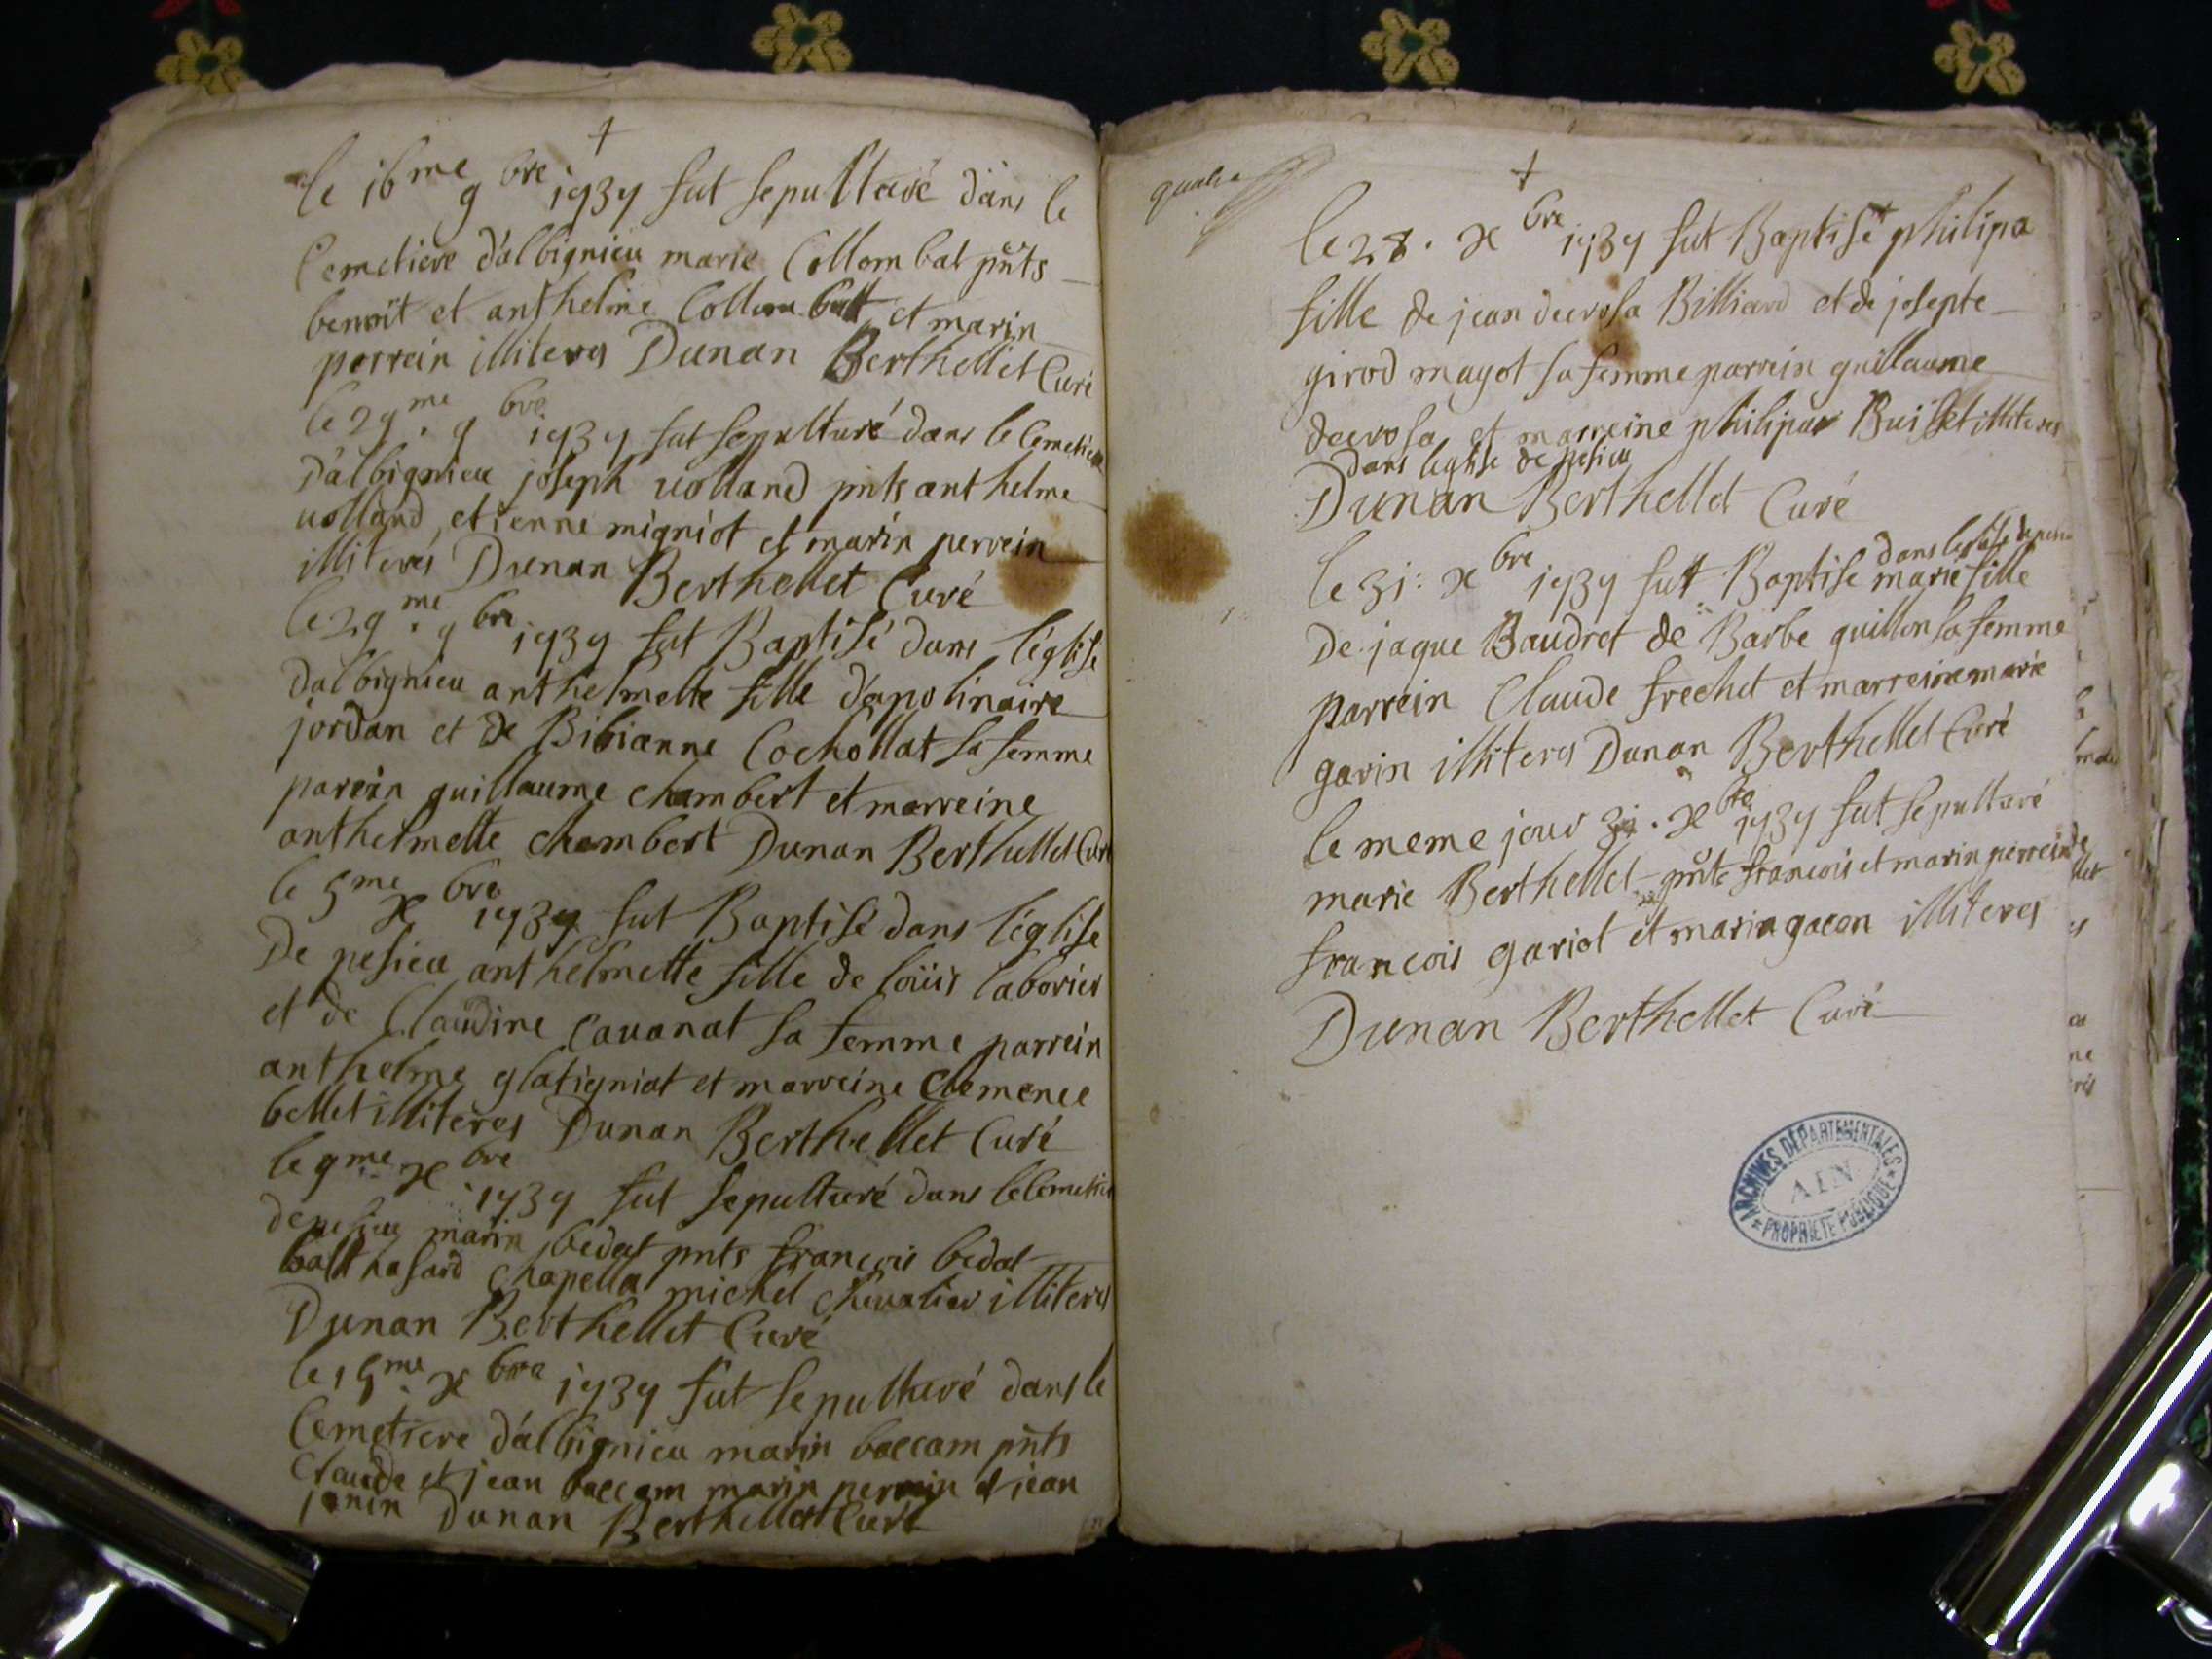 le 16me 9bre 1737 fut sepulturé dans le
Cemetiere d'albignieu marie Collombat pñts
benoit et anthelme Collombatt et marin
perrein illiterés Dunan Berthellet Curé
le 29me 9bre 1737 fut sepulturé dans le Cemetiere
d'albignieu joseph uolland pnts anthelme
uolland, etienne migniot et marin perrein
illiterés Dunan Berthellet Curé
le 29me 9bre 1737 fut Baptisé dans l'église
d'albignieu anthelmette fille d'apolinaire
jordan et de Bibianne Cochollat sa femme
parein guillaume chambert et marreine
anthelmette chambert Dunan Berthellet Curé
le 5me xbre 1737 fut Baptisé dans l'église
De pesieu anthelmette fille de loüis laborier
et de Claudine Cauanat sa femme parrein
anthelme glatigniat et marreine Clemence
bellet illiteres Dunan Berthellet Curé
le 9me xbre 1737 fut sepulturé dans le Cemetiere
de pesieu marin bedat pnts francois bedat
balthasard Chapella michel Cheualier illiteres
Dunan Berthellet Curé
le 15me xbre 1737 fut sepulturé dans le
Cemetiere d'albignieu marin baccam pñts
Claude et jean baccam marin perrein et jean
janin Dunan Berthellet Curé
le 28. xbre 1737 fut Baptisé philipa
fille de jean decrosa Billiard et de josepte
girod magot sa femme parrein guillaume
decrosa et marreine philipa Buisset illiteres
dans leglise de pesieu
Dunan Berthellet Curé
dans leglise de pesieu
le 31: xbre 1737 fut Baptise marie fille
De jaque Baudret de Barbe guillon sa femme
parrein Claude frechet et marreine marie
garin illiteres Dunan Berthellet Curé
le meme jour 31. xbre 1737 fut sepulturé
marie Berthellet pñts francois et marin perrein
francois gariot et marin gacon illiteres
Dunan Berthellet Curé
ARCHIVES DÉPARTEMENTALES
AIN
PROPRIÉTÉ PUBLIQUE